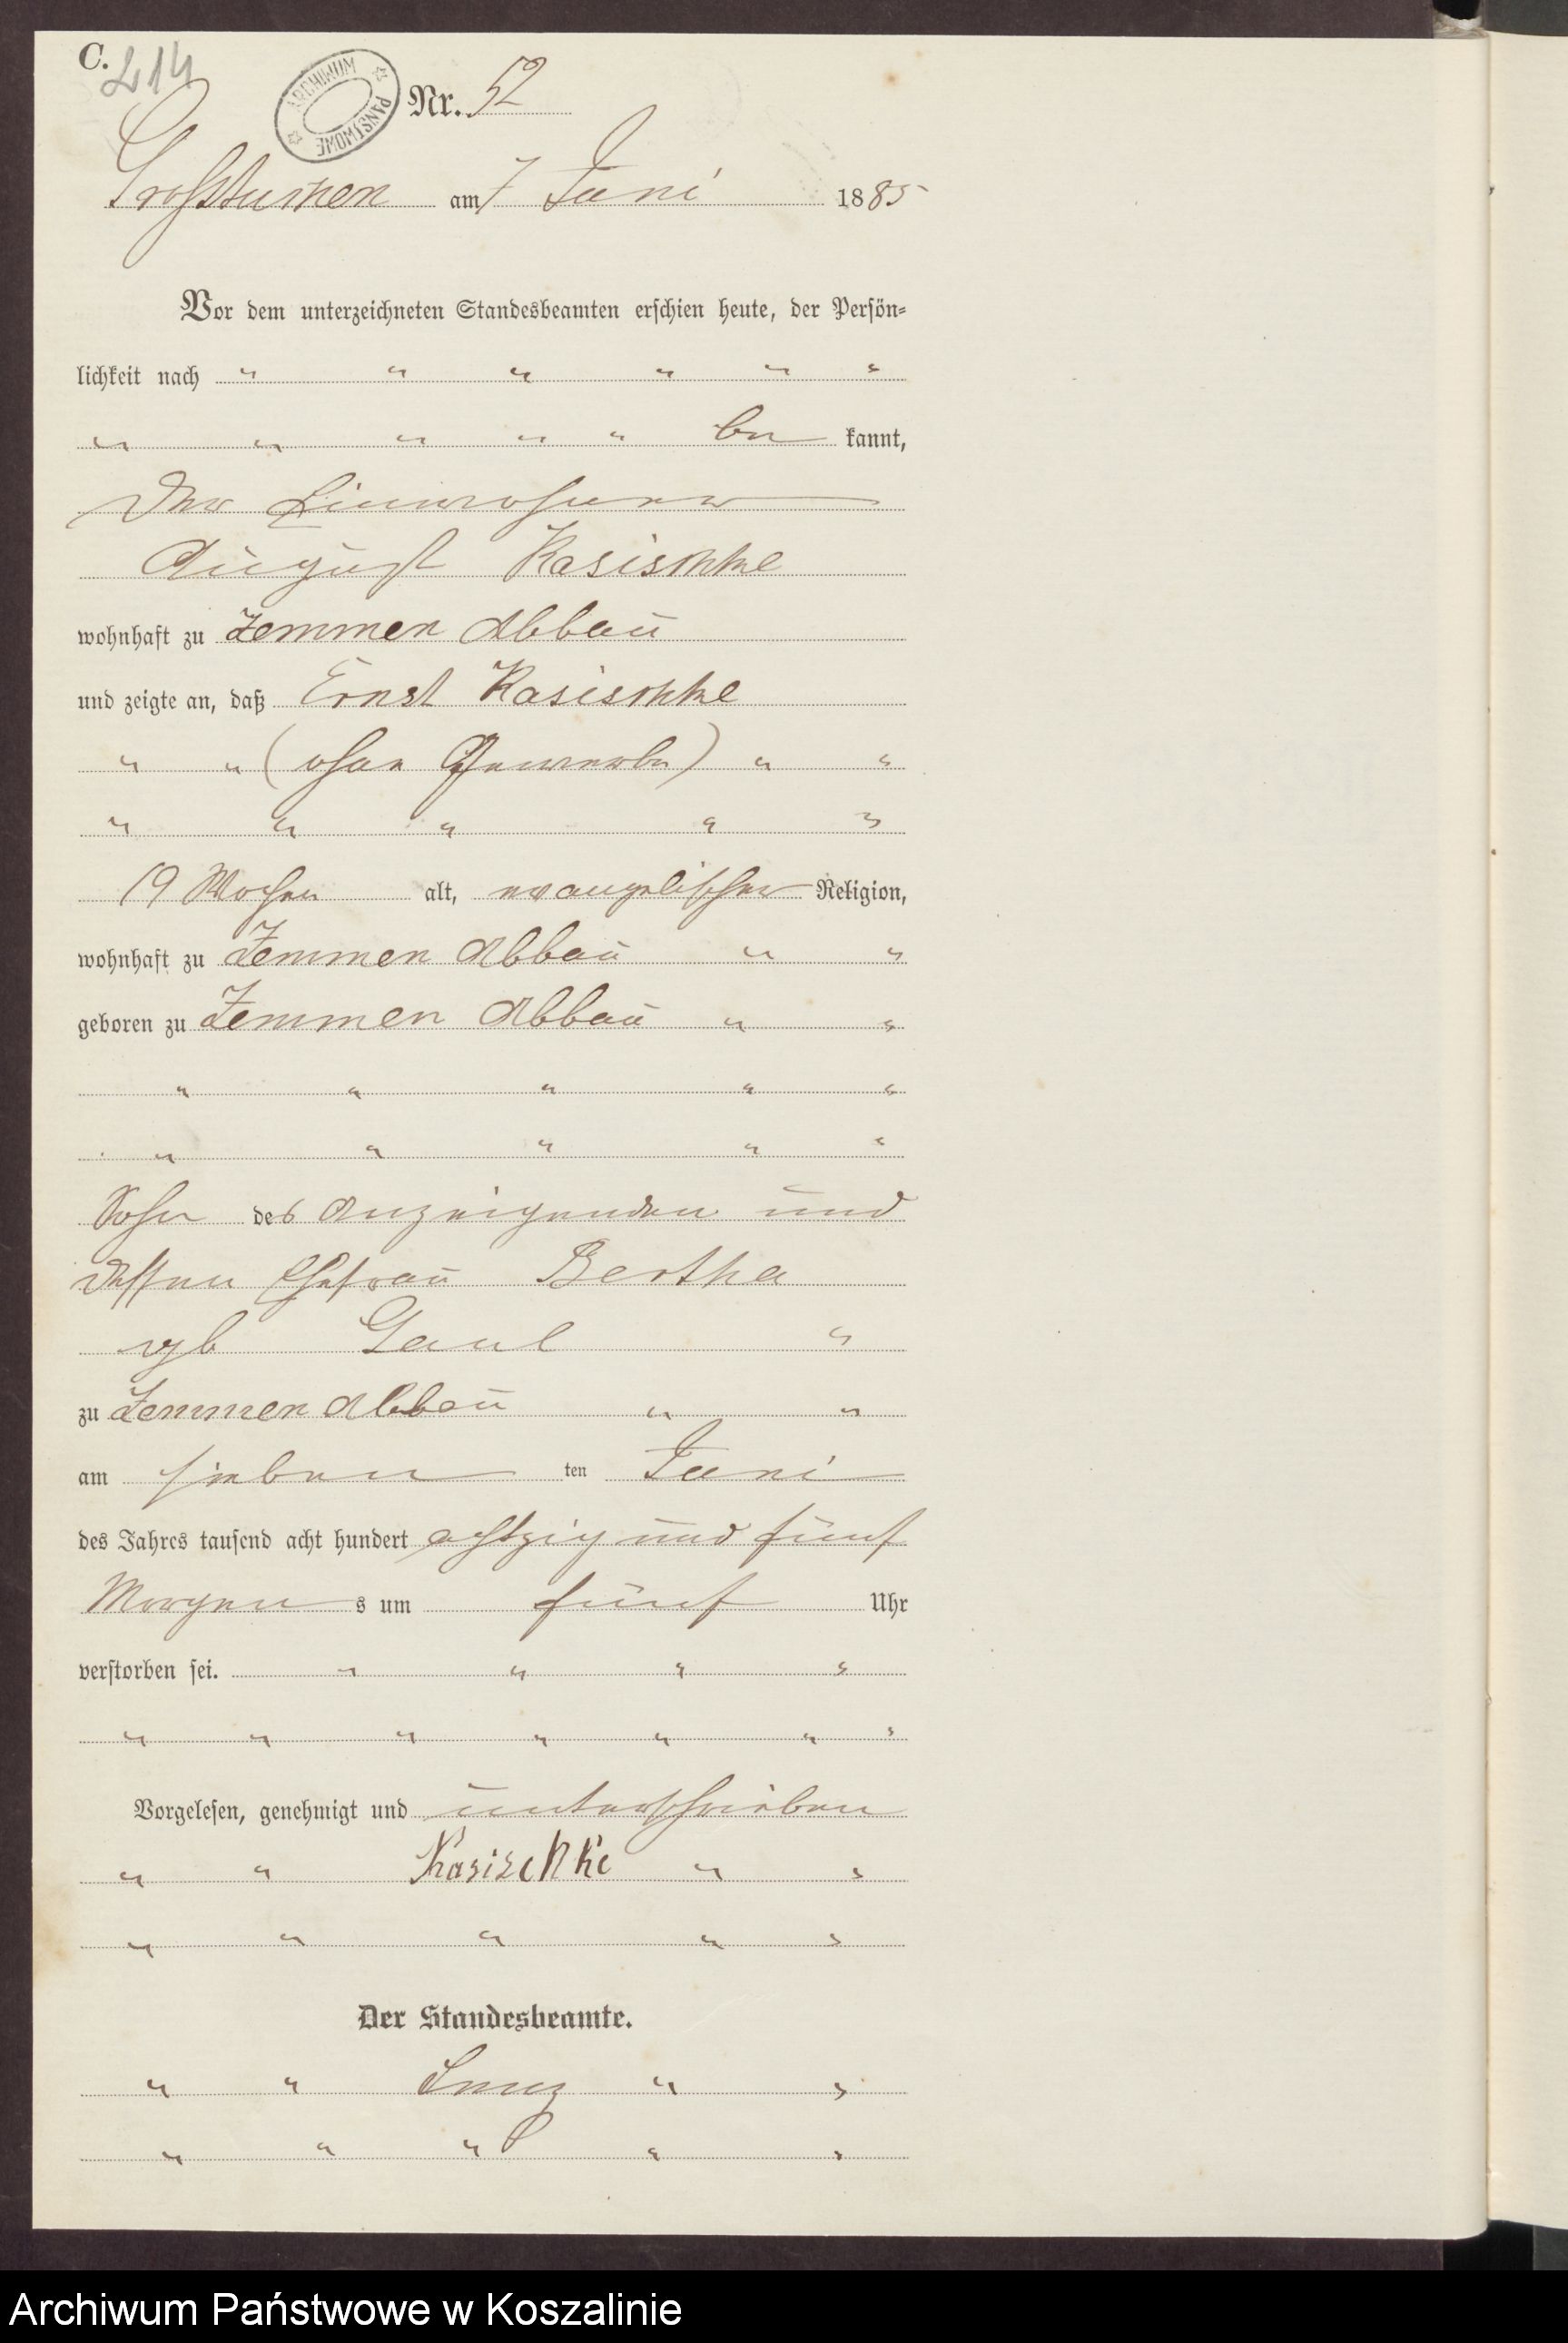 C.
214
ARCHIWUM PAŃSTWOWE
Nr. 52
Großtuchen am 7 Juni 1885
Vor dem unterzeichneten Standesbeamten erschien heute, der Persön-
lichkeit nach " " " " " "
" " " " " be kannt,
der Einwohner
August Kasischke
wohnhaft zu Zemmen Abbau
und zeigte an, daß Ernst Kasischke
" " (ohne Gewerbe) " "
" " " " "
19 Wochen alt, evangelischer Religion,
wohnhaft zu Zemmen Abbau " "
geboren zu Zemmen Abbau " "
" " " " "
" " " " "
Sohn des Anzeigenden und
dessen Ehefrau Bertha
geb Gaul "
zu Zemmen Abbau " "
am sieben ten Juni
des Jahres tausend acht hundert achtzig und fünf
Morgen s um fünf Uhr
verstorben sei. " " " "
" " " " " " "
Vorgelesen, genehmigt und unterschrieben
" " Kasischke " "
" " " " "
Der Standesbeamte.
" " " "
" " " " "
Archiwum Państwowe w Koszalinie